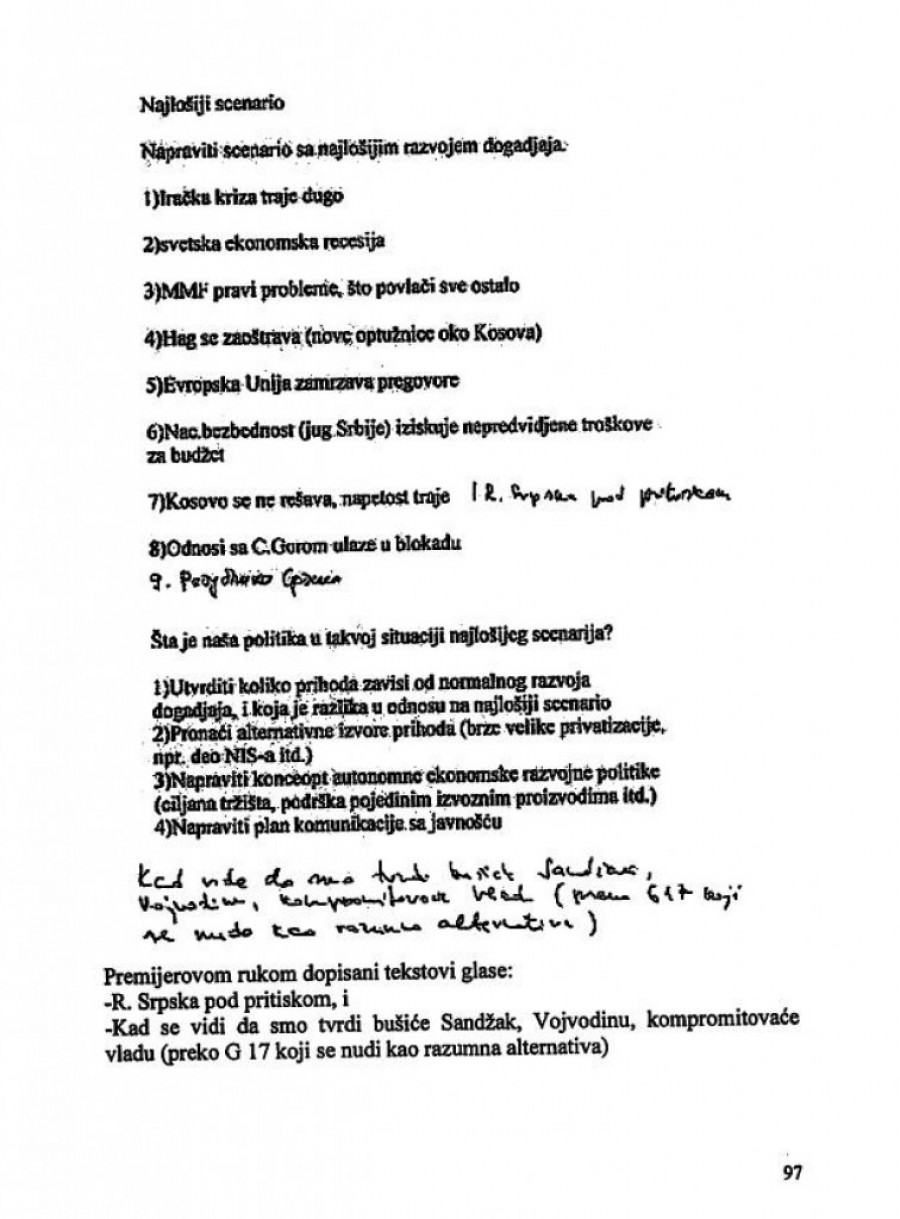 Najlošiji scenario
Napraviti scenario sa najlošijim razvojem dogadjaja.
1)Iračka kriza traje dugo
2)svetska ekonomska recesija
3)MMF pravi probleme, što povlači sve ostalo
4)Hag se zaoštrava (nove optužnice oko Kosova)
5)Evropska Unija zamrzava pregovore
6)Nac.bezbednost (jug Srbije) iziskuje nepredvidjene troškove
za budžet
7)Kosovo se ne rešava, napetost traje I R. Srpska pod pritiskom
8)Odnosi sa C.Gorom ulaze u blokadu
9.
Šta je naša politika u takvoj situaciji najlošijeg scenarija?
1)Utvrditi koliko prihoda zavisi od normalnog razvoja
dogadjaja, i koja je razlika u odnosu na najlošiji scenario
2)Pronaći alternativne izvore prihoda (brze velike privatizacije,
npr. deo NIS-a itd.)
3)Napraviti konceopt autonomne ekonomske razvojne politike
(ciljana tržišta, podrška pojedinim izvoznim proizvodima itd.)
4)Napraviti plan komunikacije sa javnošću
Kad vide da smo tvrdi bušiće Sandžak,
Vojvodinu, kompromitovaće vladu (preko G 17 koji
se nudi kao razumna alternativa)
Premijerovom rukom dopisani tekstovi glase:
-R. Srpska pod pritiskom, i
-Kad se vidi da smo tvrdi bušiće Sandžak, Vojvodinu, kompromitovaće
vladu (preko G 17 koji se nudi kao razumna alternativa)
97